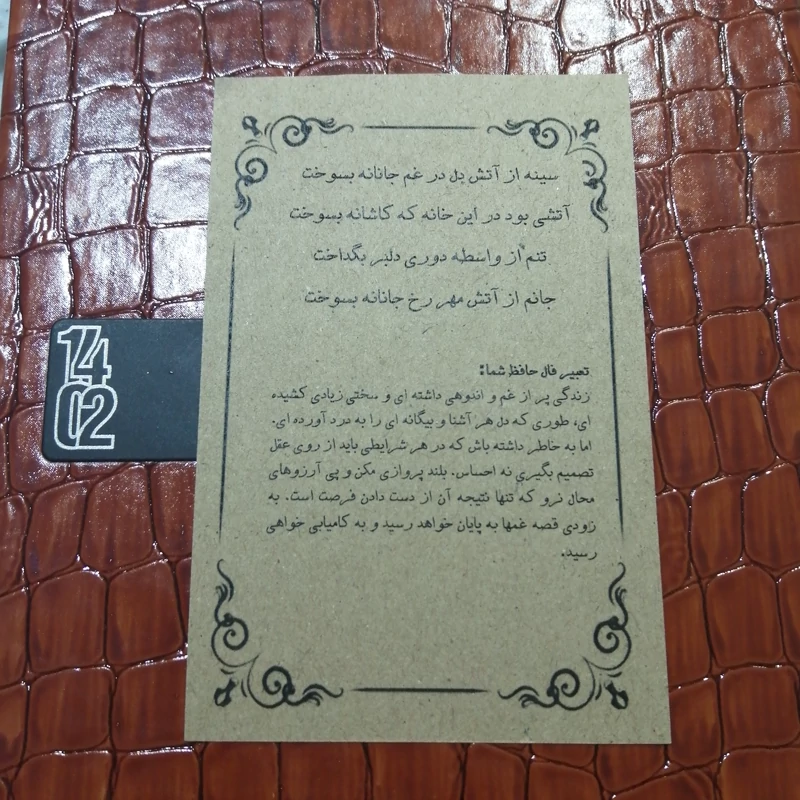 سینه از آتش دل در غم جانانه بسوخت
آتشی بود در این خانه که کاشانه بسوخت
تنم از واسطه دوری دلبر بگداخت
جانم از آتش مهر رخ جانانه بسوخت
تعبیر فال حافظ شما:
زندگی پر از غم و اندوهی داشته ای و سختی زیادی کشیده
ای، طوری که دل هر آشنا و بیگانه ای را به درد آورده ای.
اما به خاطر داشته باش که در هر شرایطی باید از روی عقل
تصمیم بگیری نه احساس. بلند پروازی مکن و پی آرزوهای
محال نرو که تنها نتیجه آن از دست دادن فرصت است. به
زودی قصه غمها به پایان خواهد رسید و به کامیابی خواهی
رسید.
14
02